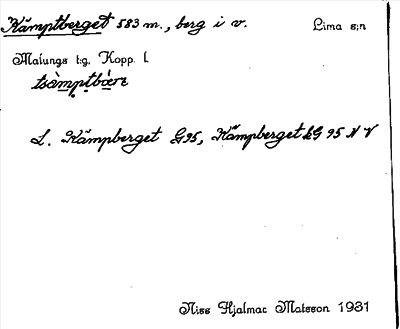 Kämptberget 583 m., berg i v. Lima s:n
Malungs t:g. Kopp. l.
tsàmptbær̀e
L. Kämpberget G95, Kämpberget kG 95 N V
Niss Hjalmar Matsson 1931